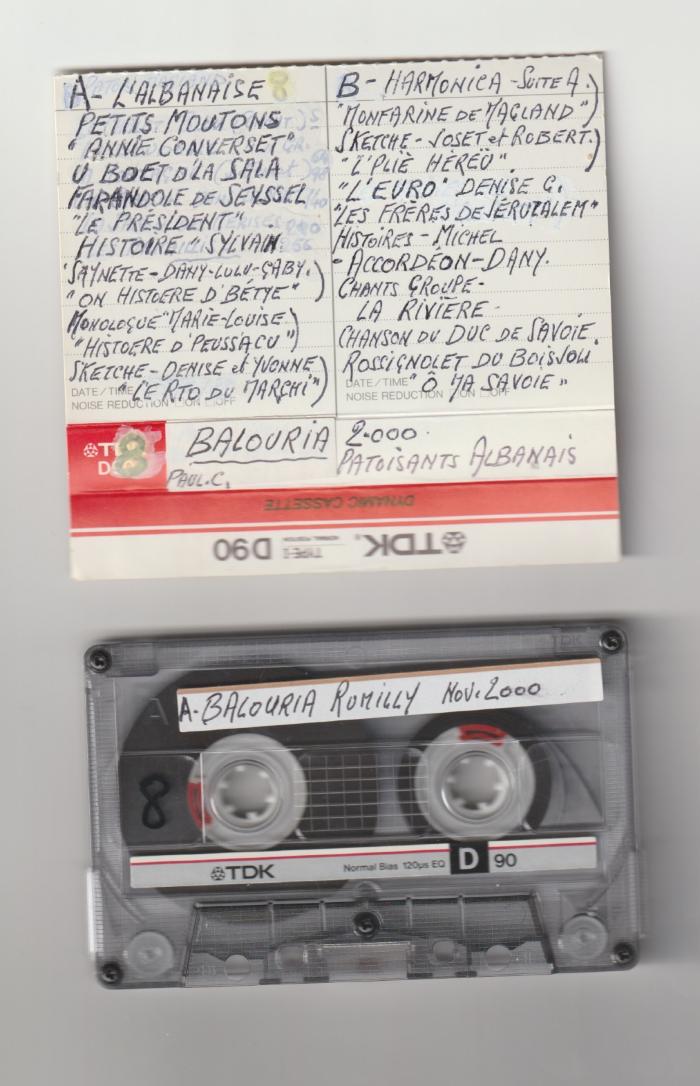 A- L'ALBANAISE 8
PETITS MOUTONS
"ANNIE CONVERSET"
U BOET D'LA SALA
FARANDOLE DE SEYSSEL
"LE PRÉSIDENT"
HISTOIRE " SYLVAIN.
SAYNETTE-DANY-LULU-GABY.)
"ON HISTOERE D'BÉTYE")
MONOLOGUE "MARIE-LOUISE.)
"HISTOERE D'PEUSSACU")
SKETCHE-DENISE et YVONNE)
"LE RTO DU MARCHI")
DATE/TIME
NOISE REDUCTION □ON □OFF
B- HARMONICA -SUITE A.)
"MONFARINE DE MAGLAND")
SKETCHE- JOSET et ROBERT.)
"L'PLIÈ HÉREÜ".)
"L'EURO" DENISE G.
"LES FRÈRES DE JÉRUZALEM"
HISTOIRES- MICHEL
- ACCORDÉON-DANY.
CHANTS GROUPE-
LA RIVIÈRE-
CHANSON DU DUC DE SAVOIE.
ROSSIGNOLET DU BOISJOLI
"Ô MA SAVOIE"
DATE/TIME
NOISE REDUCTION □ON □OFF
TDK
D 8
BALOURIA 2.000.
PAUL.C. PATOISANTS ALBANAIS
DYNAMIC CASSETTE
TDK TYPE I NORMAL POSITION D90
TDK
A
A-BALOURIA RUMILLY NOV.2000
8
TDK Normal Bias 120µs EQ D 90